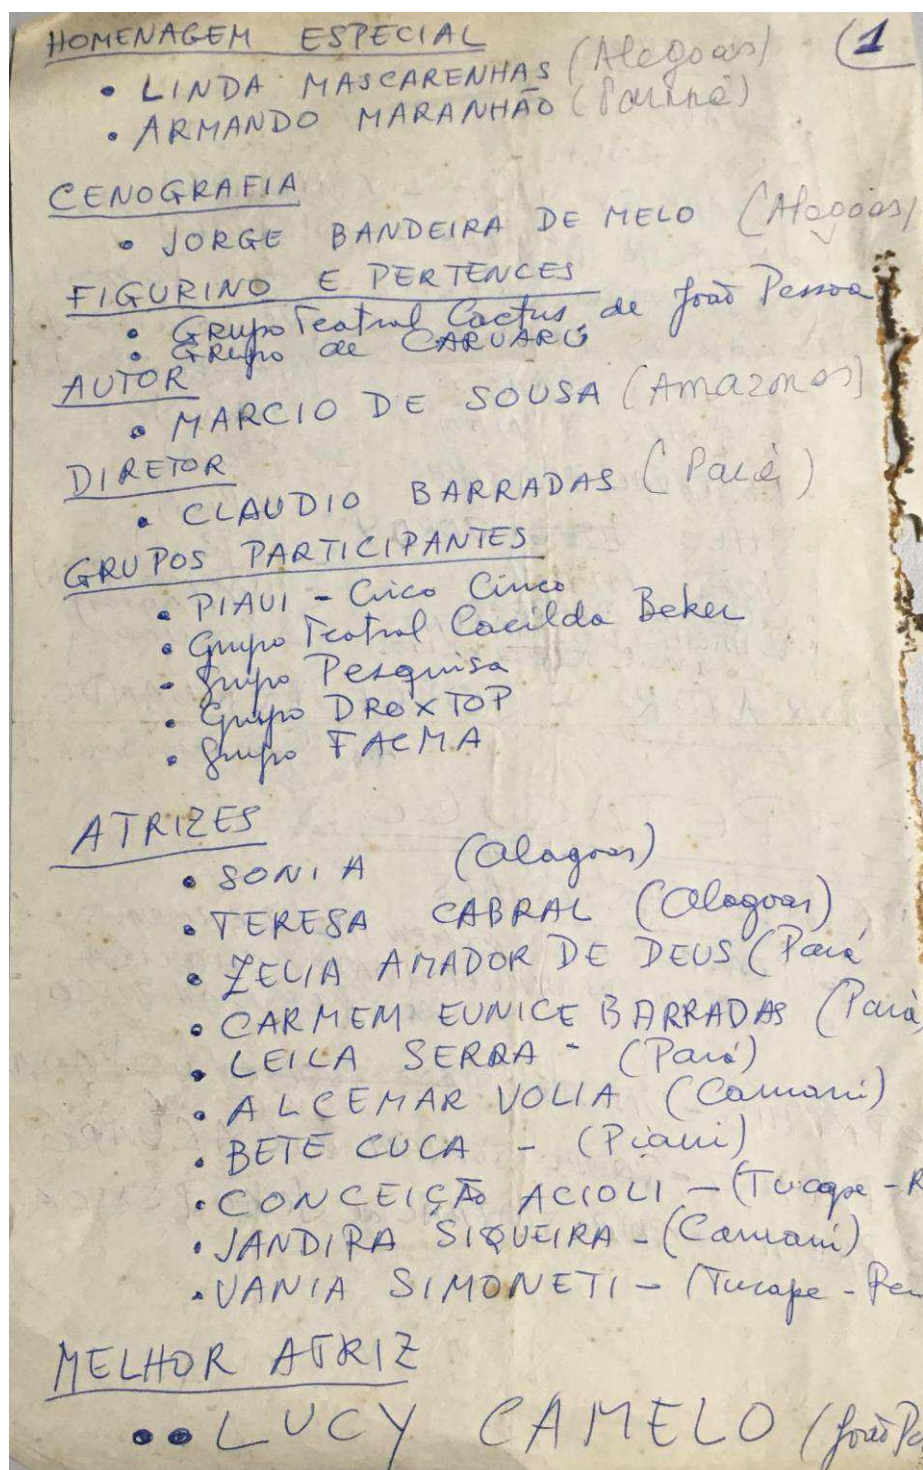 HOMENAGEM ESPECIAL (1
• LINDA MASCARENHAS (Alagoas)
• ARMANDO MARANHÃO (Paraná)
CENOGRAFIA
• JORGE BANDEIRA DE MELO (Alagoas)
FIGURINO E PERTENCES
• GRUPO Teatral Cactus de João Pessoa
• GRUPO de CARUARÚ
AUTOR
• MARCIO DE SOUSA (Amazonas)
DIRETOR
• CLAUDIO BARRADAS (Pará)
GRUPOS PARTICIPANTES
• PIAUI - Circo Cinco
• Grupo Teatral Cacilda Beker
• Grupo Pesquisa
• Grupo DROXTOP
• Grupo FACMA
ATRIZES
• SONIA (Alagoas)
• TERESA CABRAL (Alagoas)
• ZELIA AMADOR DE DEUS (Pará
• CARMEM EUNICE BARRADAS (Pará)
• LEILA SERRA - (Pará)
• ALCEMAR VOLIA (Camarú)
• BETE CUCA - (Piaui)
• CONCEIÇÃO ACIOLI - (Tucape - R
• JANDIRA SIQUEIRA - (Caruarú)
• VANIA SIMONETI - (Tucape - Re
MELHOR ATRIZ
•• LUCY CAMELO (João Pe